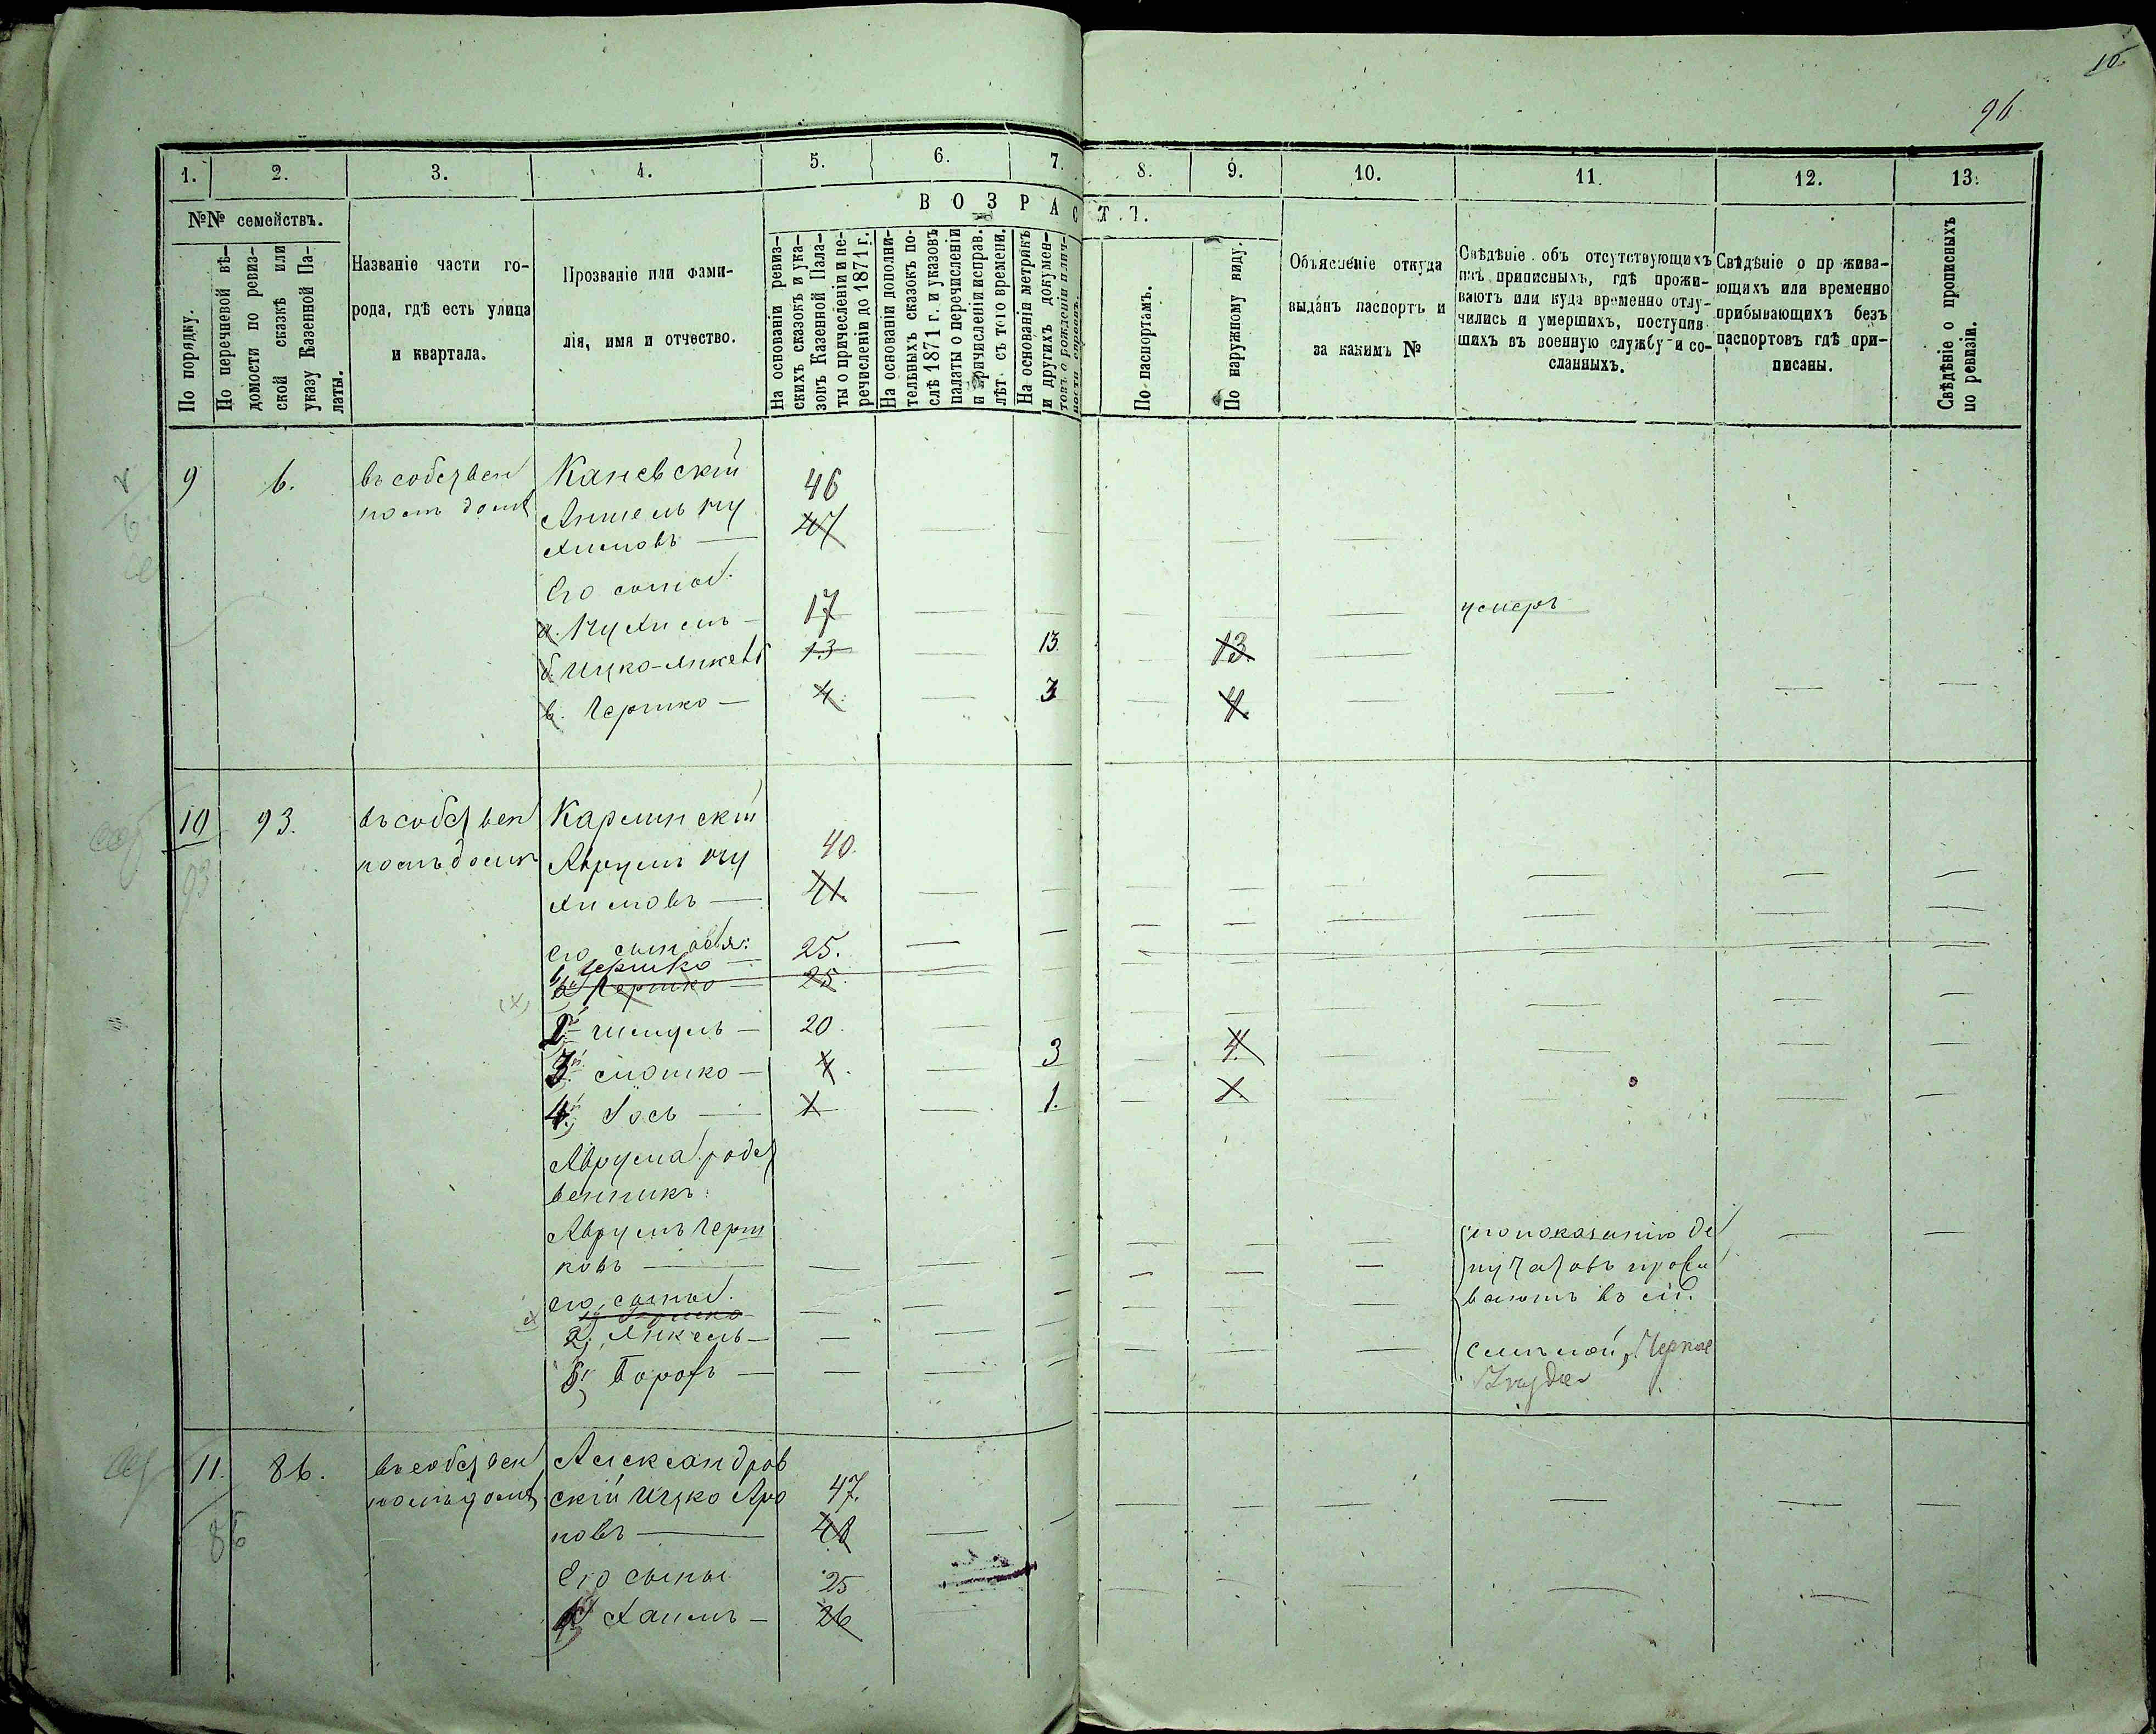 10
96
1. 2. 3. 4. 5. 6. 7. 8. 9. 10. 11. 12. 13.
№№ семействъ.
По порядку.
По перечневой вѣ-
домости по ревиз-
ской сказкѣ или
указу Казенной Па-
латы.
Названіе части го-
рода, гдѣ есть улица
и квартала.
Прозваніе или фами-
лія, имя и отчество.
ВОЗРАСТ
На основаніи ревиз-
скихъ сказокъ и ука-
зовъ Казенной Пала-
ты о причисленіи и пе-
речисленіи до 1871 г.
На основаніи дополни-
тельныхъ сказокъ по-
слѣ 1871 г. и указовъ
палаты о перечисленіи
и причисленіи исправ.
лѣт съ того времени.
На основаніи метрикъ
и другихъ докумен-
товъ о рожденіи и лич-
ности евреевъ.
По паспортамъ.
По наружному виду.
Объясненіе откуда
выданъ паспортъ и
за какимъ №
Свѣдѣніе объ отсутствующихъ
изъ приписныхъ, гдѣ прожи-
ваютъ или куда временно отлу-
чились и умершихъ, поступив-
шихъ въ военную службу и со-
сланныхъ.
Свѣдѣніе о прожива-
ющихъ или временно
прибывающихъ безъ
паспортовъ гдѣ при-
писаны.
Свѣдѣніе о прописныхъ
по ревизіи.
9 6. въ собствен Каневскій 46
номъ домѣ Аншель Ну
химовъ — 47
Его сынов.
а. Нухимъ — 17 умеръ
б. Ицко-Янкель 13 13. 13
в. Гершко — 4 3 4
10 93. въ собствен Карлинскій
номъ домѣ Аврумъ Ну 40.
93 химовъ — 41.
его сыновья: 25.
1, Гершко
Гершко — 25.
2й Шмуль — 20.
3й Мошко — 4. 3 4.
4й Іось — 1 1. 1
Аврума родст
венникъ:
Аврумъ Герш по показанію де
ковъ — путатовъ прожи
его сыны. ваютъ въ м.
2, Янкель — Смѣлой,
3, Борохъ —
11. 86. въ собствен Александров
номъ домѣ скій Ицко Аро 47.
86 новъ — 48
Его сыны 25
Хаимъ — 26